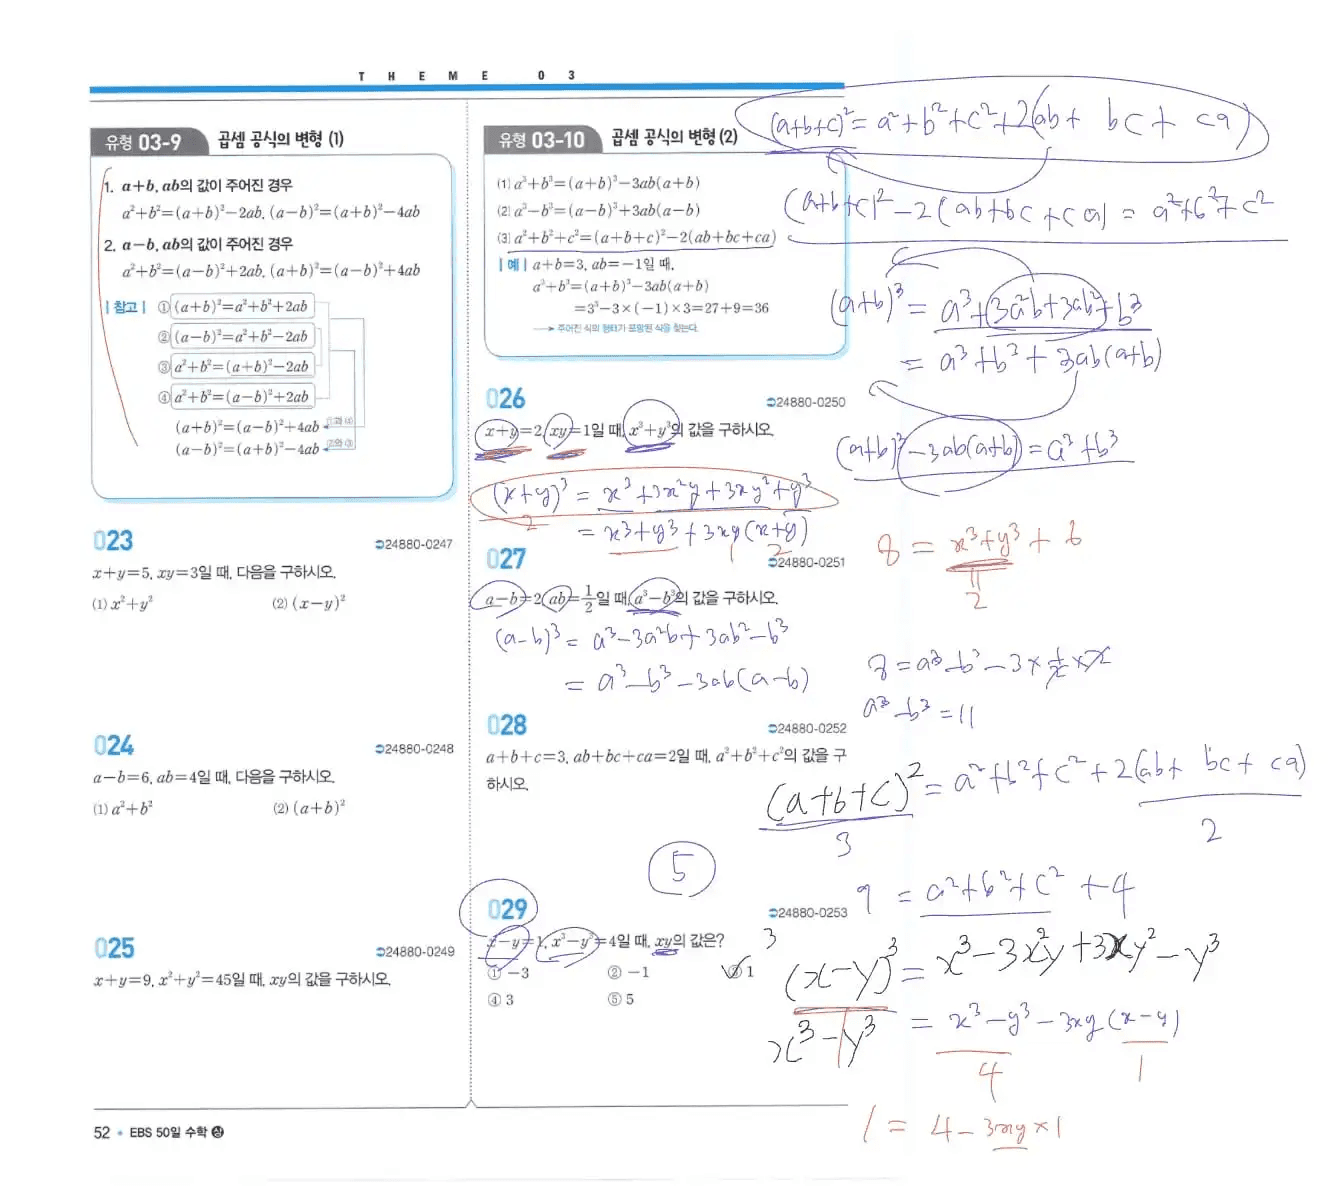 THEME 03
유형 03-9 곱셈 공식의 변형 (1)
1. a+b, ab의 값이 주어진 경우
a²+b²=(a+b)²-2ab, (a-b)²=(a+b)²-4ab
2. a-b, ab의 값이 주어진 경우
a²+b²=(a-b)²+2ab, (a+b)²=(a-b)²+4ab
|참고| ① (a+b)²=a²+b²+2ab
② (a-b)²=a²+b²-2ab
③ a²+b²=(a+b)²-2ab
④ a²+b²=(a-b)²+2ab
(a+b)²=(a-b)²+4ab ①과 ④
(a-b)²=(a+b)²-4ab ②와 ③
023
24880-0247
x+y=5, xy=3일 때, 다음을 구하시오.
(1) x²+y² (2) (x-y)²
024
24880-0248
a-b=6, ab=4일 때, 다음을 구하시오.
(1) a²+b² (2) (a+b)²
025
24880-0249
x+y=9, x²+y²=45일 때, xy의 값을 구하시오.
유형 03-10 곱셈 공식의 변형 (2)
(1) a³+b³=(a+b)³-3ab(a+b)
(2) a³-b³=(a-b)³+3ab(a-b)
(3) a²+b²+c²=(a+b+c)²-2(ab+bc+ca)
|예| a+b=3, ab=-1일 때,
a³+b³=(a+b)³-3ab(a+b)
=3³-3×(-1)×3=27+9=36
→ 주어진 식의 형태가 포함된 식을 찾는다.
026
24880-0250
x+y=2, xy=1일 때, x³+y³의 값을 구하시오.
(x+y)³ = x³+3x²y+3xy²+y³
2
= x³+y³+3xy(x+y)
1 2
027
24880-0251
a-b=2, ab=1/2일 때, a³-b³의 값을 구하시오.
(a-b)³ = a³-3a²b+3ab²-b³
= a³-b³-3ab(a-b)
028
24880-0252
a+b+c=3, ab+bc+ca=2일 때, a²+b²+c²의 값을 구
하시오.
5
029
24880-0253
x-y=1, x³-y³=4일 때, xy의 값은?
① -3 ② -1 ③ 1
④ 3 ⑤ 5
(a+b+c)² = a²+b²+c²+2(ab+bc+ca)
(a+b+c)²-2(ab+bc+ca) = a²+b²+c²
(a+b)³ = a³+3a²b+3ab²+b³
= a³+b³+3ab(a+b)
(a+b)³-3ab(a+b)=a³+b³
8 = x³+y³+6
2
8 = a³-b³-3×1/2×2
a³-b³=11
(a+b+c)² = a²+b²+c²+2(ab+bc+ca)
3 2
9 = a²+b²+c²+4
3
(x-y)³ = x³-3x²y+3xy²-y³
1
x³-y³
= x³-y³-3xy(x-y)
4 1
1 = 4-3xy×1
52 • EBS 50일 수학 상